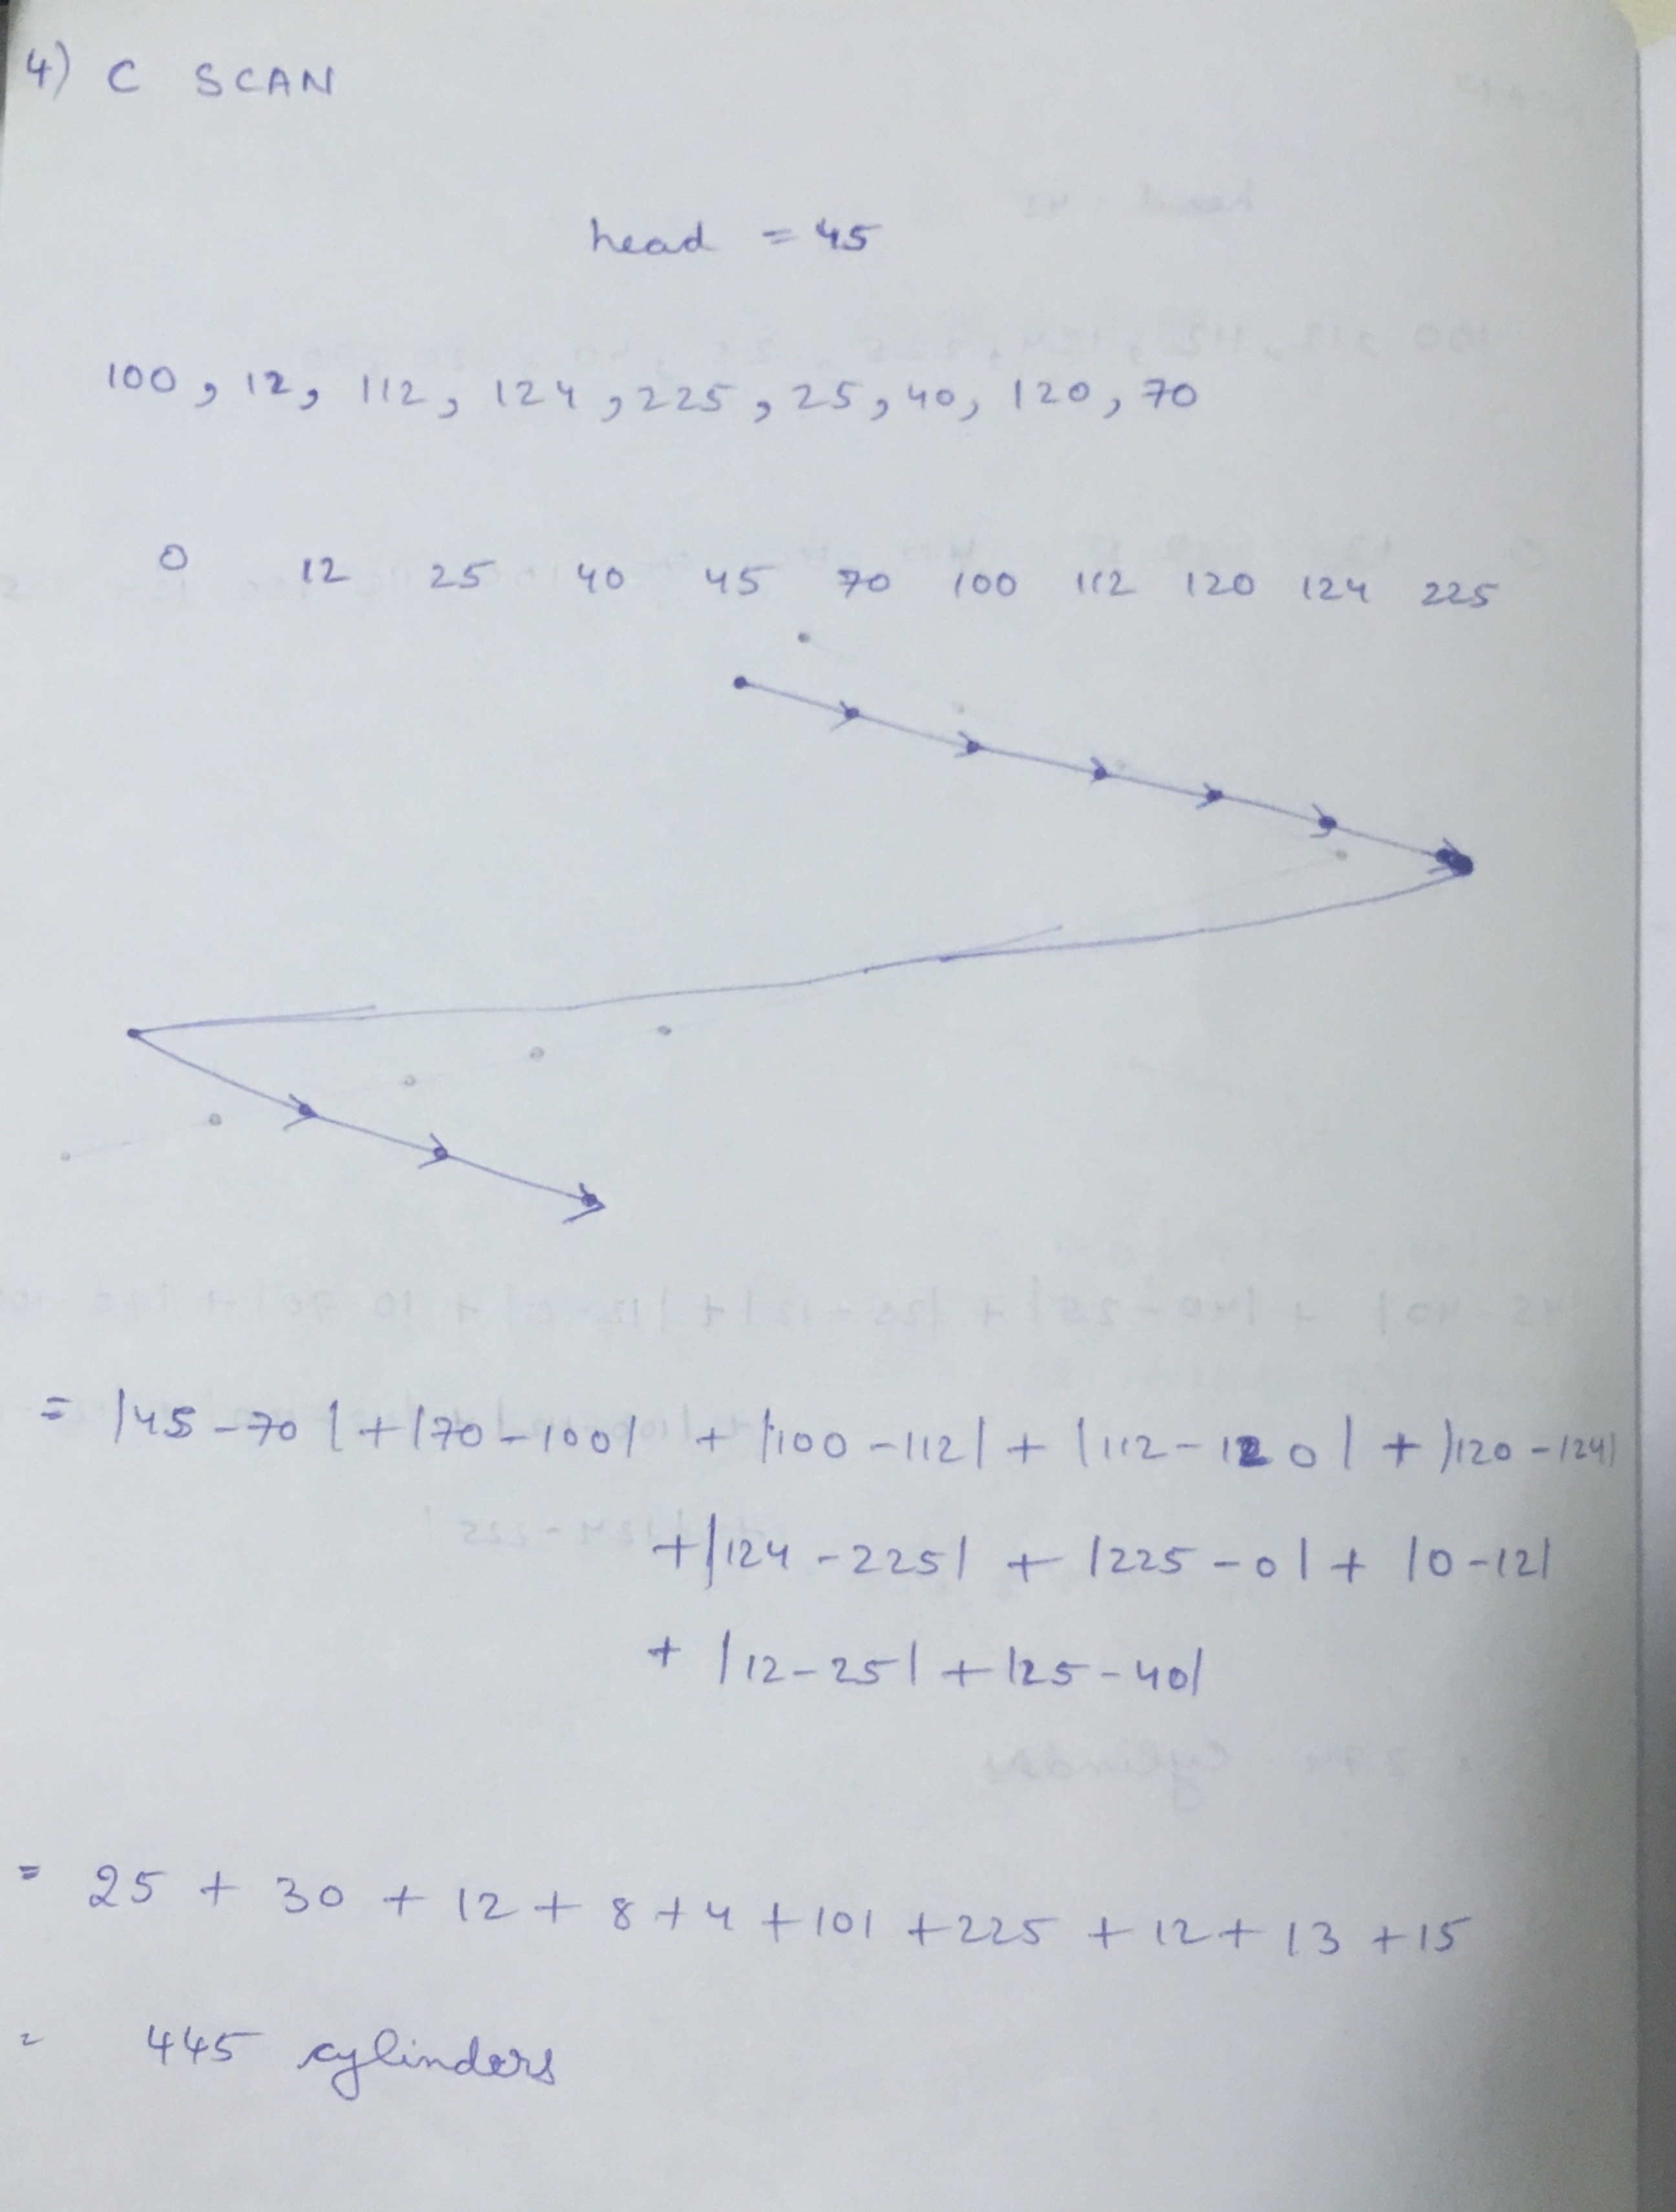 4) C SCAN
head = 45
100, 12, 112, 124, 225, 25, 40, 120, 70
0 12 25 40 45 70 100 112 120 124 225
= |45-70| + |70-100| + |100-112| + |112-120| + |120-124|
+ |124-225| + |225-0| + |0-12|
+ |12-25| + |25-40|
= 25 + 30 + 12 + 8 + 4 + 101 + 225 + 12 + 13 + 15
= 445 cylinders